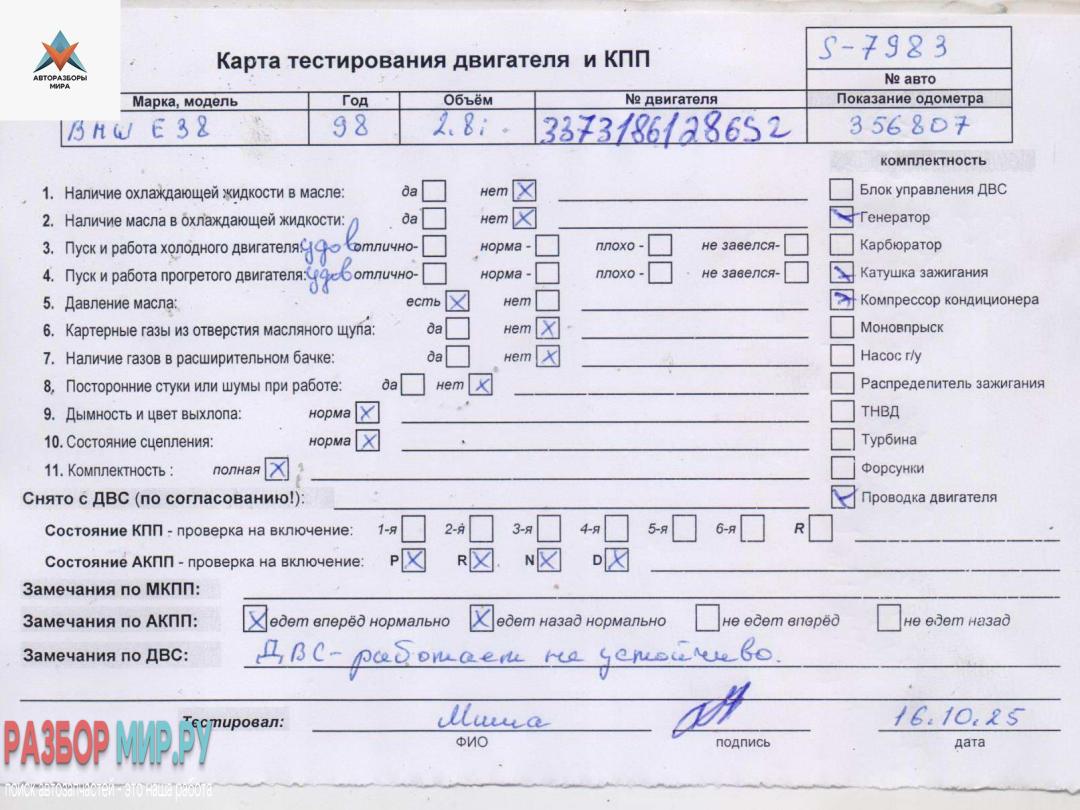 АВТОРАЗБОРЫ
МИРА
Карта тестирования двигателя и КПП
S-7983
№ авто
Марка, модель Год Объём № двигателя Показание одометра
BMW E38 98 2.8i. 33731861286S2 356807
комплектность
1. Наличие охлаждающей жидкости в масле: да нет X
Блок управления ДВС
2. Наличие масла в охлаждающей жидкости: да нет X
Генератор
3. Пуск и работа холодного двигателя: удов отлично- норма - плохо - не завелся-
Карбюратор
4. Пуск и работа прогретого двигателя: удов отлично- норма - плохо - не завелся-
Катушка зажигания
5. Давление масла: есть X нет
Компрессор кондиционера
6. Картерные газы из отверстия масляного щупа: да нет X
Моновпрыск
7. Наличие газов в расширительном бачке: да нет X
Насос г/у
8. Посторонние стуки или шумы при работе: да нет X
Распределитель зажигания
9. Дымность и цвет выхлопа: норма X
ТНВД
10. Состояние сцепления: норма X
Турбина
11. Комплектность : полная X
Форсунки
Снято с ДВС (по согласованию!):
Проводка двигателя
Состояние КПП - проверка на включение: 1-я 2-я 3-я 4-я 5-я 6-я R
Состояние АКПП - проверка на включение: P X R X N X D X
Замечания по МКПП:
Замечания по АКПП: X едет вперёд нормально X едет назад нормально не едет вперёд не едет назад
Замечания по ДВС: ДВС - работает не устойчиво.
Тестировал: Миша 16.10.25
ФИО подпись дата
РАЗБОРМИР.РУ
поиск автозапчастей - это наша работа